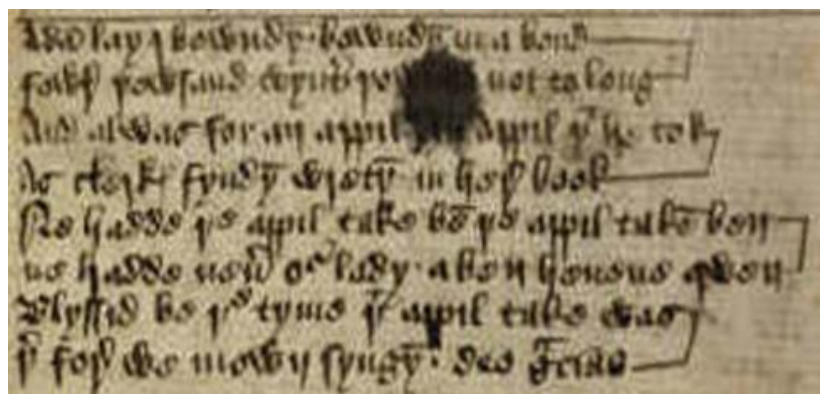 Adā lay i bowndyn · bowndȳ in a bond
fowr þowsand wynt̄ þow not to long
And al was for an appil an appil þt he tok
As clerkꝭ fyndȳ wretȳ in herꝭ book
Ne hadde þe appil take bē þe appil takē ben
ne hadde neuꝰ or lady · a ben heuene qwen
Blyssid be þe tyme þt appil take was
þr forꝭ we mown syngȳ · deo gr̄cias